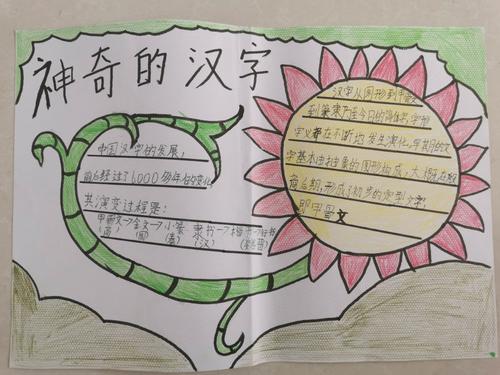 神奇的汉字
中国汉字的发展，
前后经过了6000多年的变化
其演变过程是：
甲骨文→金文→小篆 隶书→楷书→行书
(商) (周) (秦) (汉) (魏晋)
汉字从图形到
到篆隶
字义都在不断地发生演化，早其月的文
字基本由抽象的图形构成，大概在殷
商后期，形成了初步的定型文字，
即甲骨文